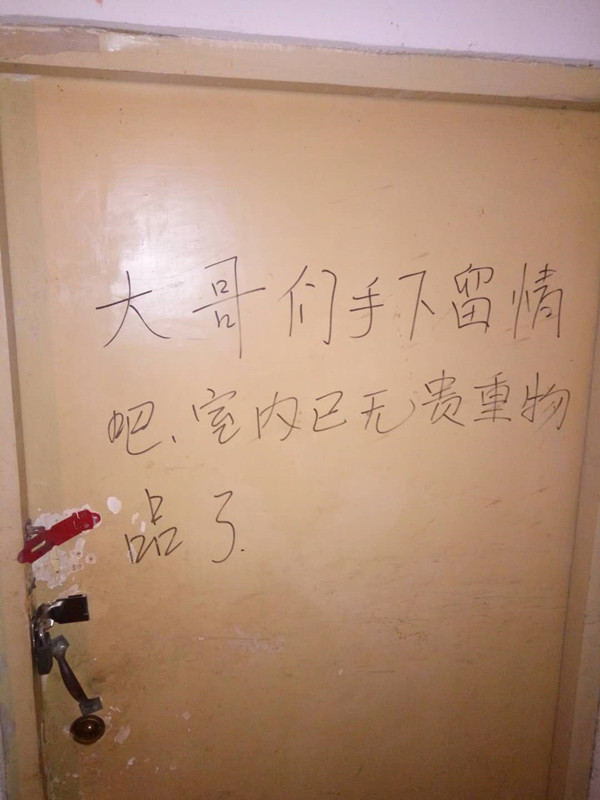 大哥们手下留情
吧、室内已无贵重物
品了.